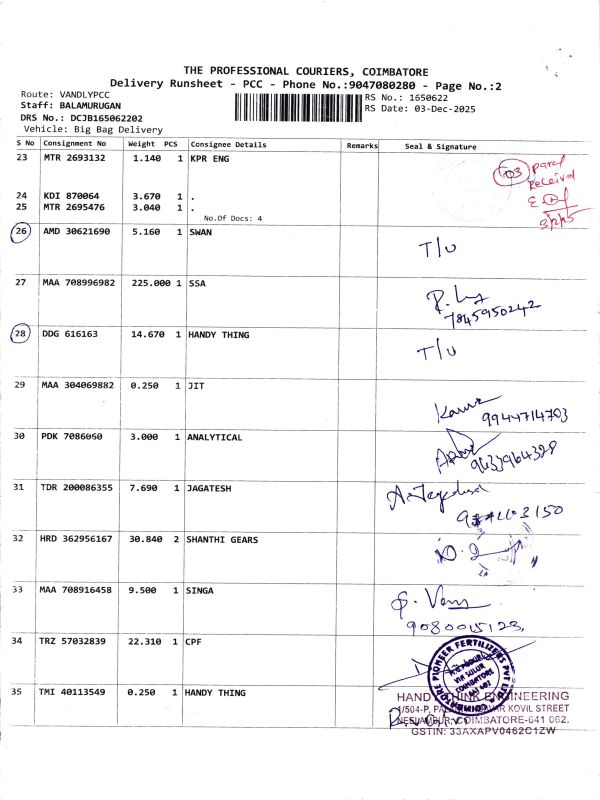 THE PROFESSIONAL COURIERS, COIMBATORE
Delivery Runsheet - PCC - Phone No.:9047080280 - Page No.:2
Route: VANDLYPCC
Staff: BALAMURUGAN
DRS No.: DCJB165062202
Vehicle: Big Bag Delivery
RS No.: 1650622
RS Date: 03-Dec-2025
S No Consignment No Weight PCS Consignee Details Remarks Seal & Signature
23 MTR 2693132 1.140 1 KPR ENG
03 parcel
Received
24 KDI 870064 3.670 1 .
25 MTR 2695476 3.040 1 .
No.Of Docs: 4
26 AMD 30621690 5.160 1 SWAN
T/U
27 MAA 708996982 225.000 1 SSA
7845950242
28 DDG 616163 14.670 1 HANDY THING
T/U
29 MAA 304069882 0.250 1 JIT
9944714703
30 PDK 7086060 3.000 1 ANALYTICAL
31 TDR 200086355 7.690 1 JAGATESH
A. Jagadesh
32 HRD 362956167 30.840 2 SHANTHI GEARS
33 MAA 708916458 9.500 1 SINGA
9080015123
34 TRZ 57032839 22.310 1 CPF
PIONEER FERTILIZERS PVT LTD
VIA SULUR
COIMBATORE
35 TMI 40113549 0.250 1 HANDY THING
HAND THINK ENGINEERING
1/504-P, KOVIL STREET
COIMBATORE-641 062.
GSTIN: 33AXAPV0462C1ZW